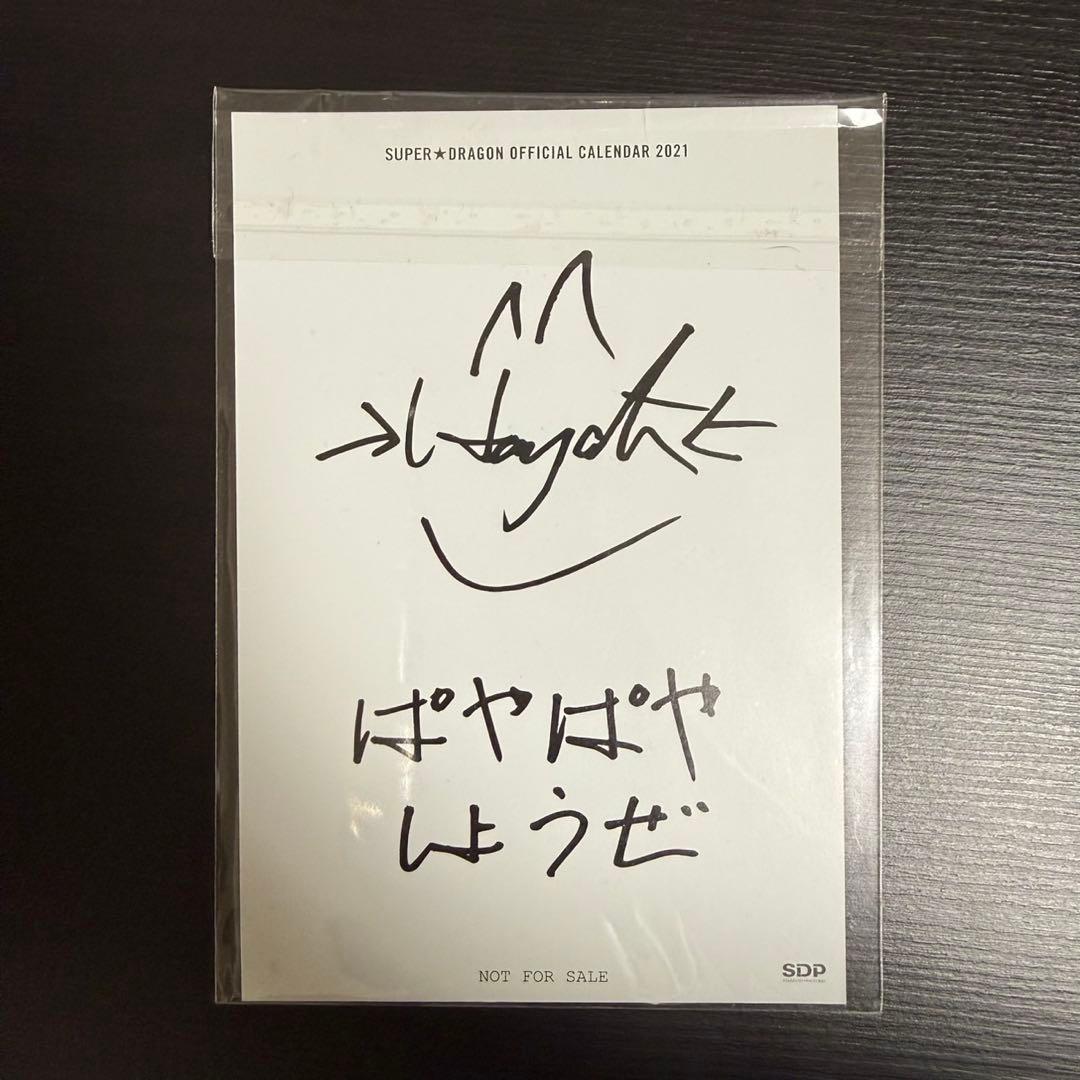 SUPER★DRAGON OFFICIAL CALENDAR 2021
ぱやぱや
しようぜ
NOT FOR SALE
SDP